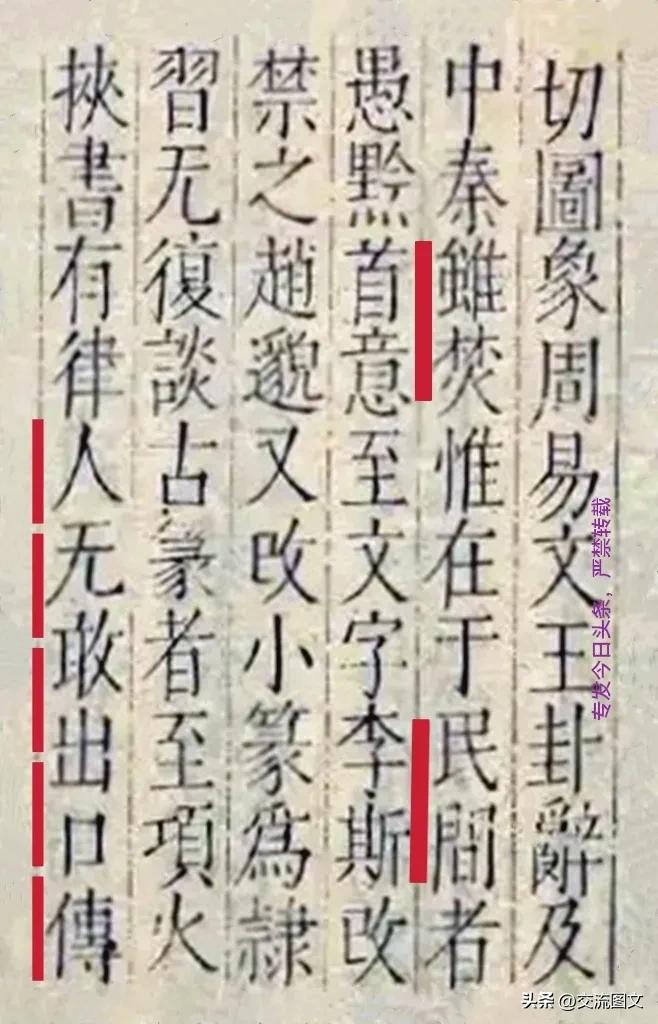 切圖象周易文王卦辭及
中秦雖焚惟在于民間者
愚黔首意至文字李斯改
禁之趙邈又改小篆為隸
習无復談占篆者至項火
挾書有律人无敢出口傳
专发今日头条，严禁转载
头条 @交流图文